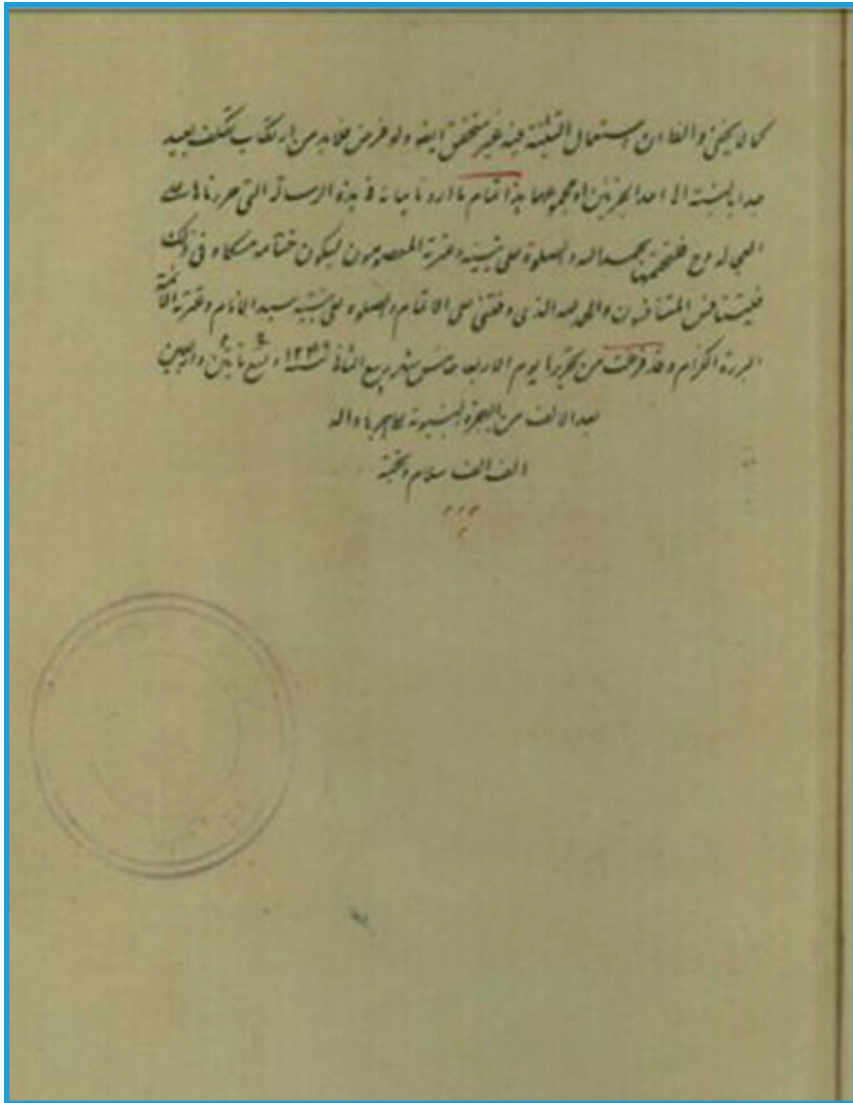 كما لا يخفى والظ ان استعمال التثنية فيه غير متحقق ايضا ولو فرض فلابد من ارتكاب تكلف بعيد
جدا بالنسبة الى احد الجزئين او مجموعهما هذا تمام ما اردنا بيانه في هذه الرسالة التي حررناها على
العجالة ولنختمها بحمد الله والصلوة على نبيه وعترته المعصومون ليكون ختامه مسكا وفى ذلك
فليتنافس المتنافسون والحمد لله الذى وفقنى على الاتمام والصلوة على نبيه سيد الانام وعترته الائمة
البررة الكرام وقد فرغت من تحريرها يوم الاربعا خامس شهر ربيع الثانى سنة ١٢٤٩ تسع مأتين واربعين
بعد الالف من الهجرة النبوية على مهاجرها واله
الف الف سلام وتحية